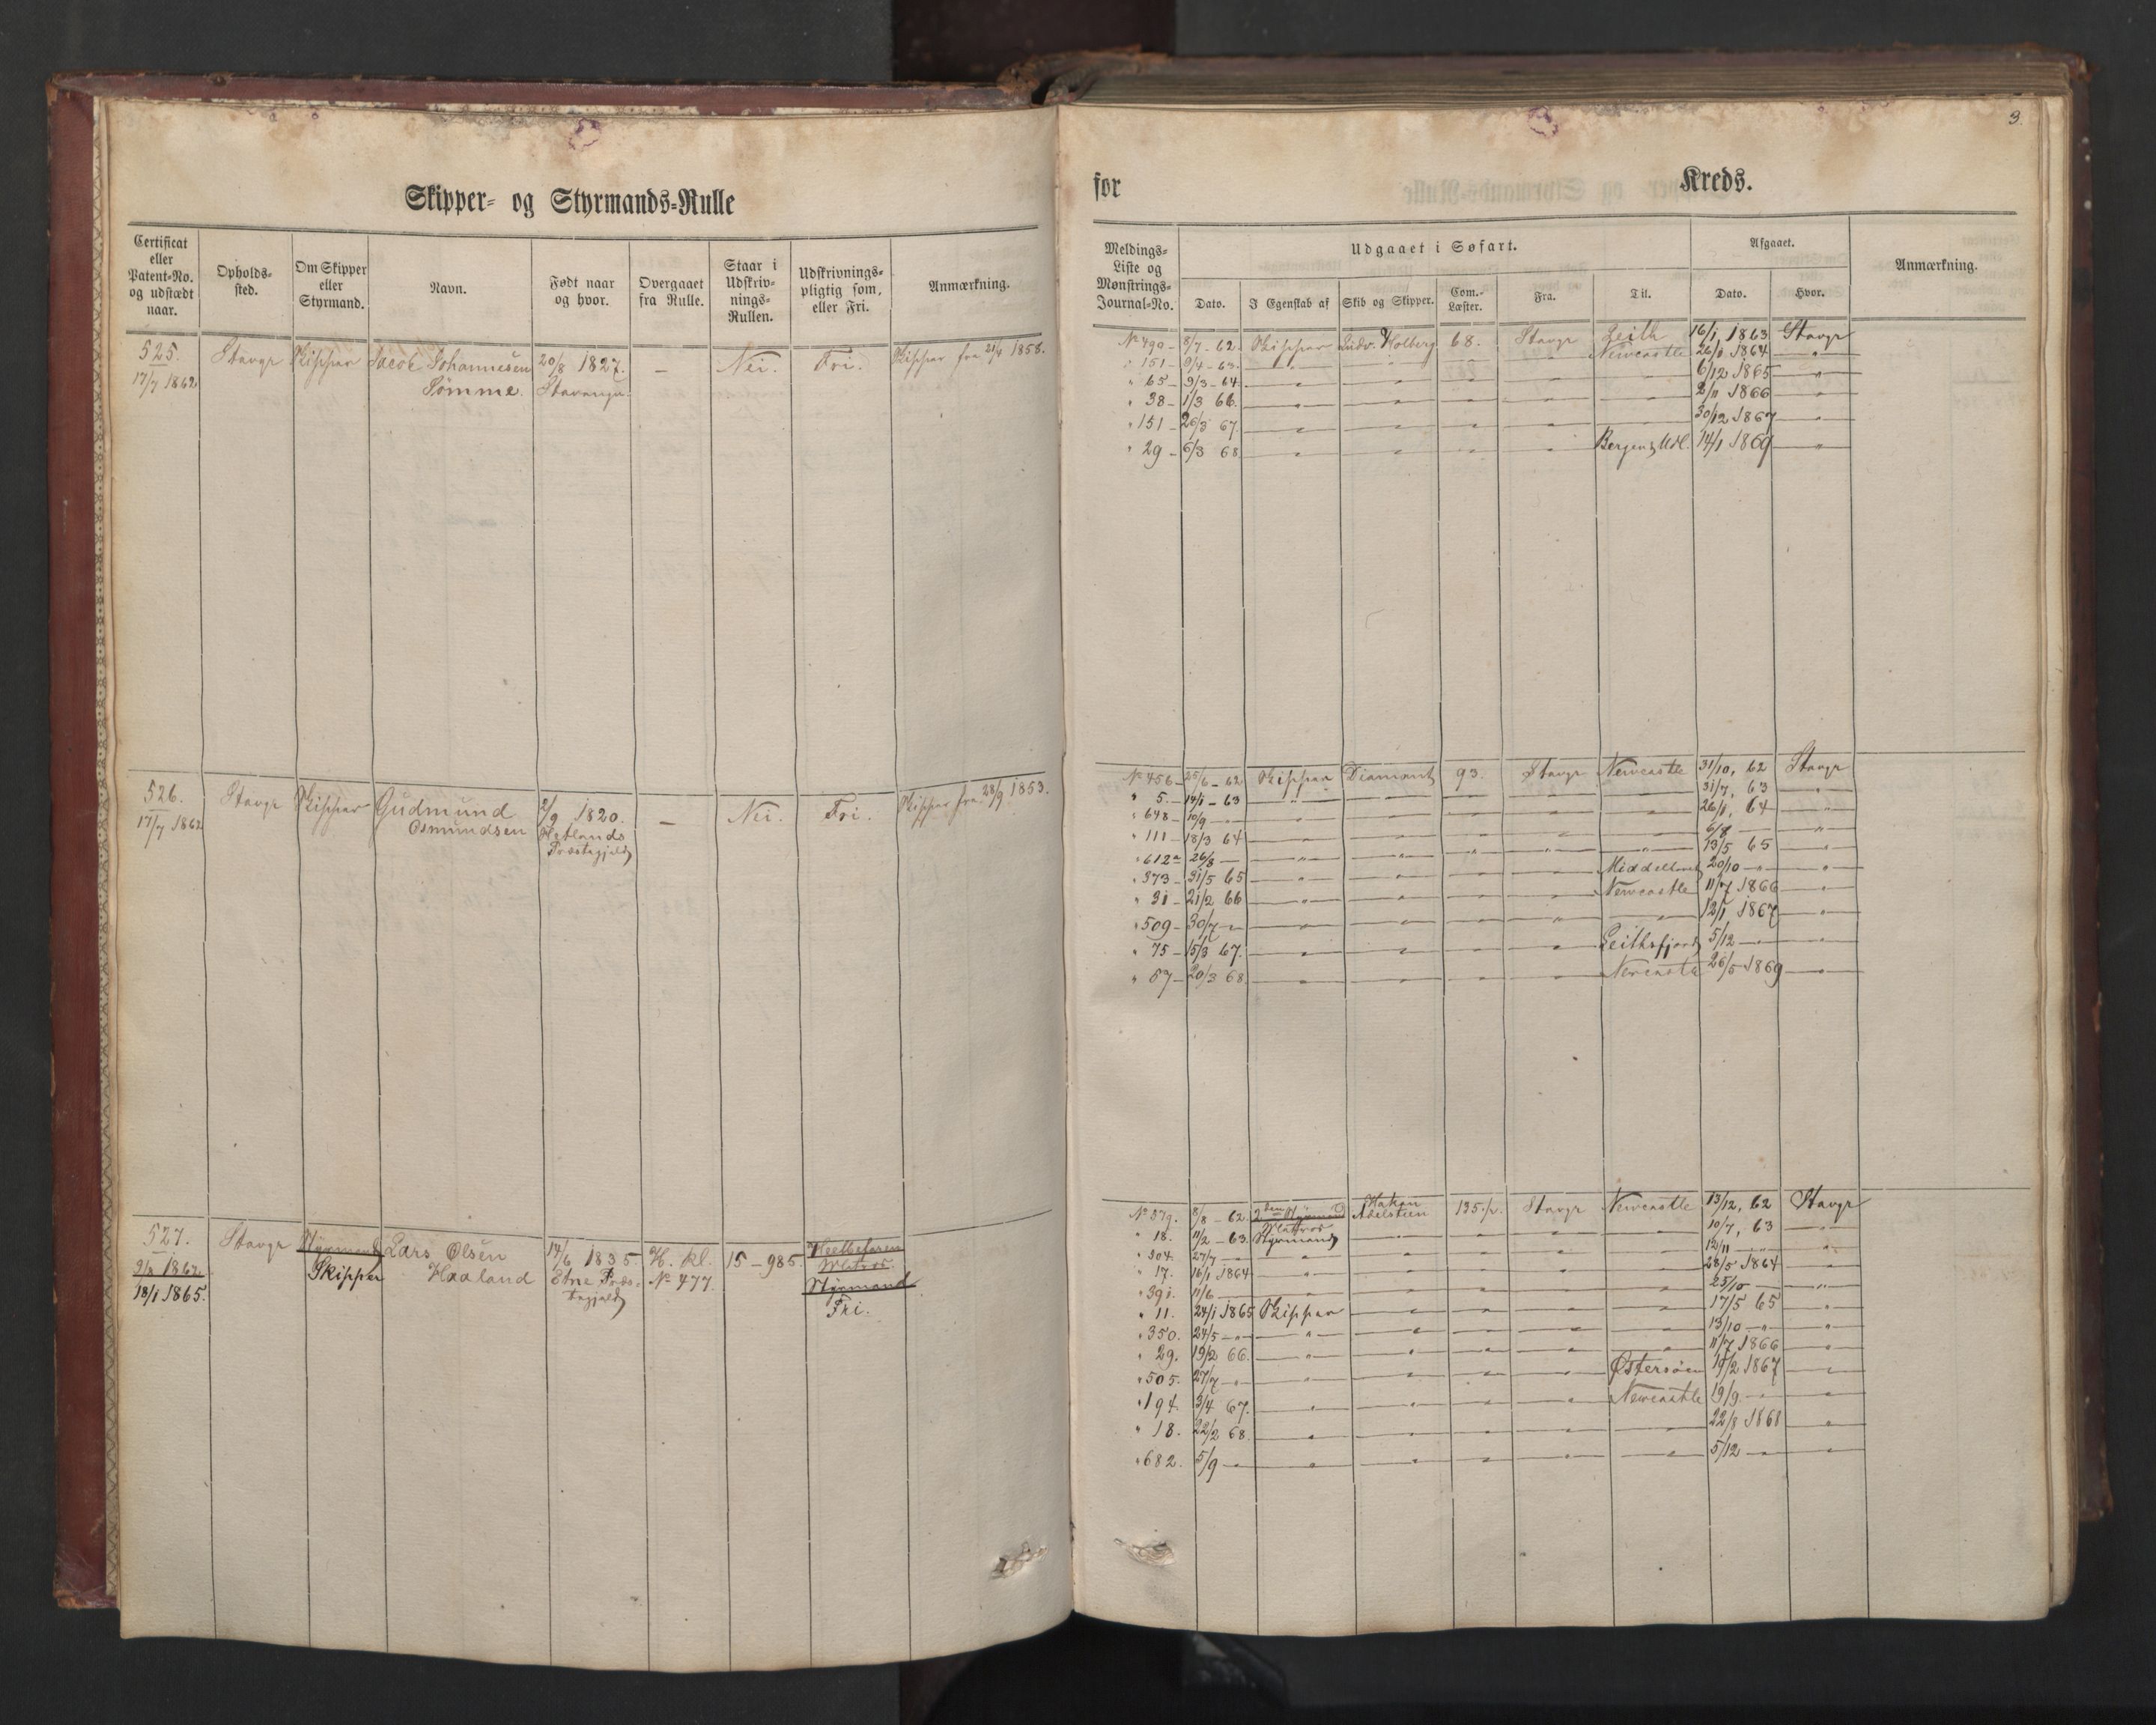 Skipper- og Styrmands-Rulle
Certificat eller Patent-No. og udstædt naar.
Opholds-sted.
Om Skipper eller Styrmand.
Navn.
Født naar og hvor.
Overgaaet fra Rulle.
Staar i Udskriv-nings-Rullen.
Udskrivnings-pligtig som, eller Fri.
Anmærkning.
525. Stavgr Skipper Jacob Johannesen 20/8 1827. — Nei. Fri. Skipper fra 21/4 1858.
17/7 1862 Sömme. Stavanger.
526. Stavgr Skipper Gudmund 2/9 1820. — Nei. Fri. Skipper fra 28/9 1853.
17/7 1862 Osmundsen Hetlands
Præstegjeld
527. Stavgr Styrmand Lars Olsen 14/6 1835. H. kl. 15 – 985. Heelbefaren
1862 Skipper Haaland Etne Præs- No 477. Matros.
18/1 1865. tegjeld Styrmand
Fri.
3.
for Kreds.
Meldings-Liste og Mønstrings-Journal-No.
Udgaaet i Søfart.
Afgaaet.
Anmærkning.
Dato. I Egenskab af Skib og Skipper. Com.-Læster. Fra. Til. Dato. Hvor.
No 490 – 8/7 – 62. Skipper Ludv. Holberg 68. Stavgr Leith 16/1 1863 Stavgr
" 151 – 9/4 – 63. — — — — Newcastle 26/1 1864 — " —
" 65 – 9/3 – 64. — — — — — 6/12 1865 — " —
" 38 – 1/3 66. — — — — — 2/11 1866 — " —
" 151 – 26/3 67. — — — — — 30/12 1867 — " —
" 29 – 6/3 68 — — — — Bergen Udl. 14/1 1869 — " —
No 456 – 25/6 – 62 Skipper Diamant 93. Stavgr Newcastle 31/10, 62 Stavgr
" 5. – 14/1 – 63 — " — — — — — 31/7, 63 — " —
" 648 – 10/9 — — — — — — 26/1, 64 — " —
" 111 – 18/3 64 — — — — — 6/8 — — " —
" 612a 26/8 — — " — — — — — 13/5 65 — " —
" 373 – 31/5 65 — — — — Middelhavet 20/10 — " — — " —
" 31 – 21/2 66 — — — — Newcastle 11/7 1866 — " —
" 509 – 30/7 — — — — — — 12/1 1867 — " —
" 75 – 15/3 67. — — — — Leithsfjord 5/12 — — " —
" 57 – 20/3 68. — — — — Newcastle 26/5 1869 — " —
No 579. 8/8 – 62. 2den Styrmand Hakon Adelsteen 135½. Stavgr Newcastle 13/12, 62 Stavgr
Matros
" 18. 11/2 – 63. Styrmand — — — — 10/7, 63 — " —
" 504. 27/7 — — — — — — 12/11 — — " —
" 17. 16/1 1864 — — — — — 28/5 1864 — " —
" 391. 11/6 — — — — — — 25/10 — — " —
" 11. 24/1 1865 Skipper — — — — 17/5 65 — " —
" 350. 24/5 — " — — " — — — — — 13/10 — " — — " —
" 29. 19/2 66. — " — — — — — 11/7 1866 — " —
" 505. 27/7 — — — — — Østersøen 14/2 1867 — " —
" 194. 3/4 67. — — — — Newcastle 19/9 — — " —
" 18. 22/2 68. — — — — — 22/8 1868 — " —
" 682. 5/9 — — — — — — 5/12 — — " —